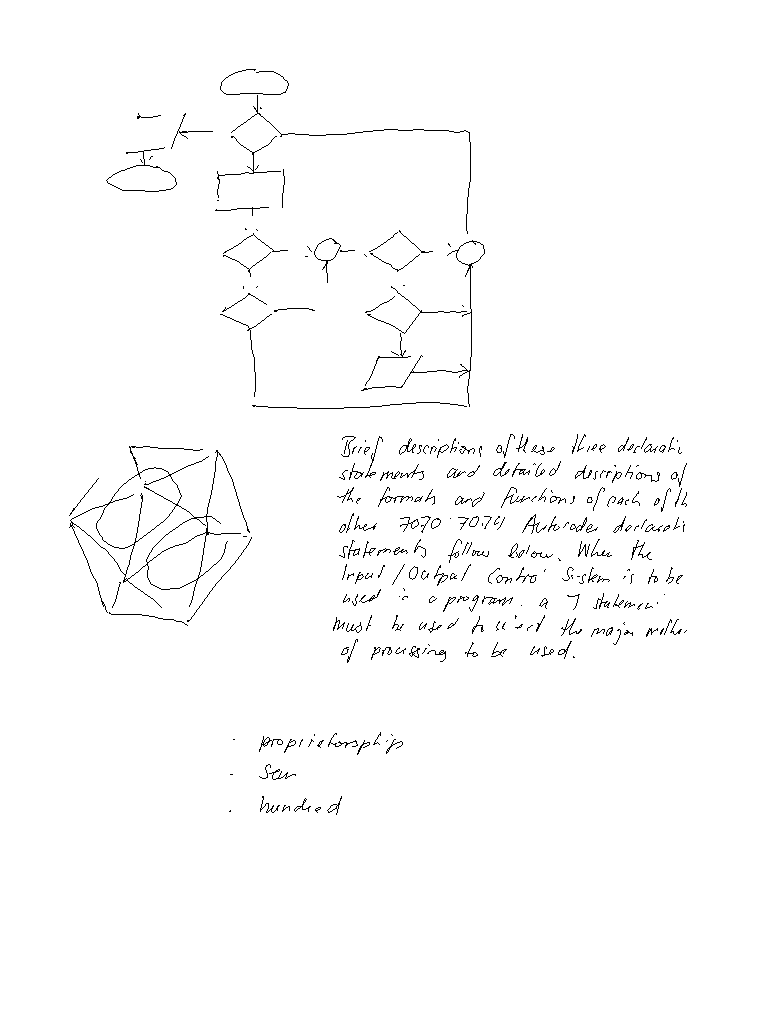 Brief descriptions of these three declarati
statements and detailed descriptions of
the formats and functions of each of th
other 7070 7074 Autocoder declarati
statements follow below. When the
Input/Output Control System is to be
used in a program. a statemen
must be used to the major
of processing to be used.
- proprietorsphips
-
. hundred